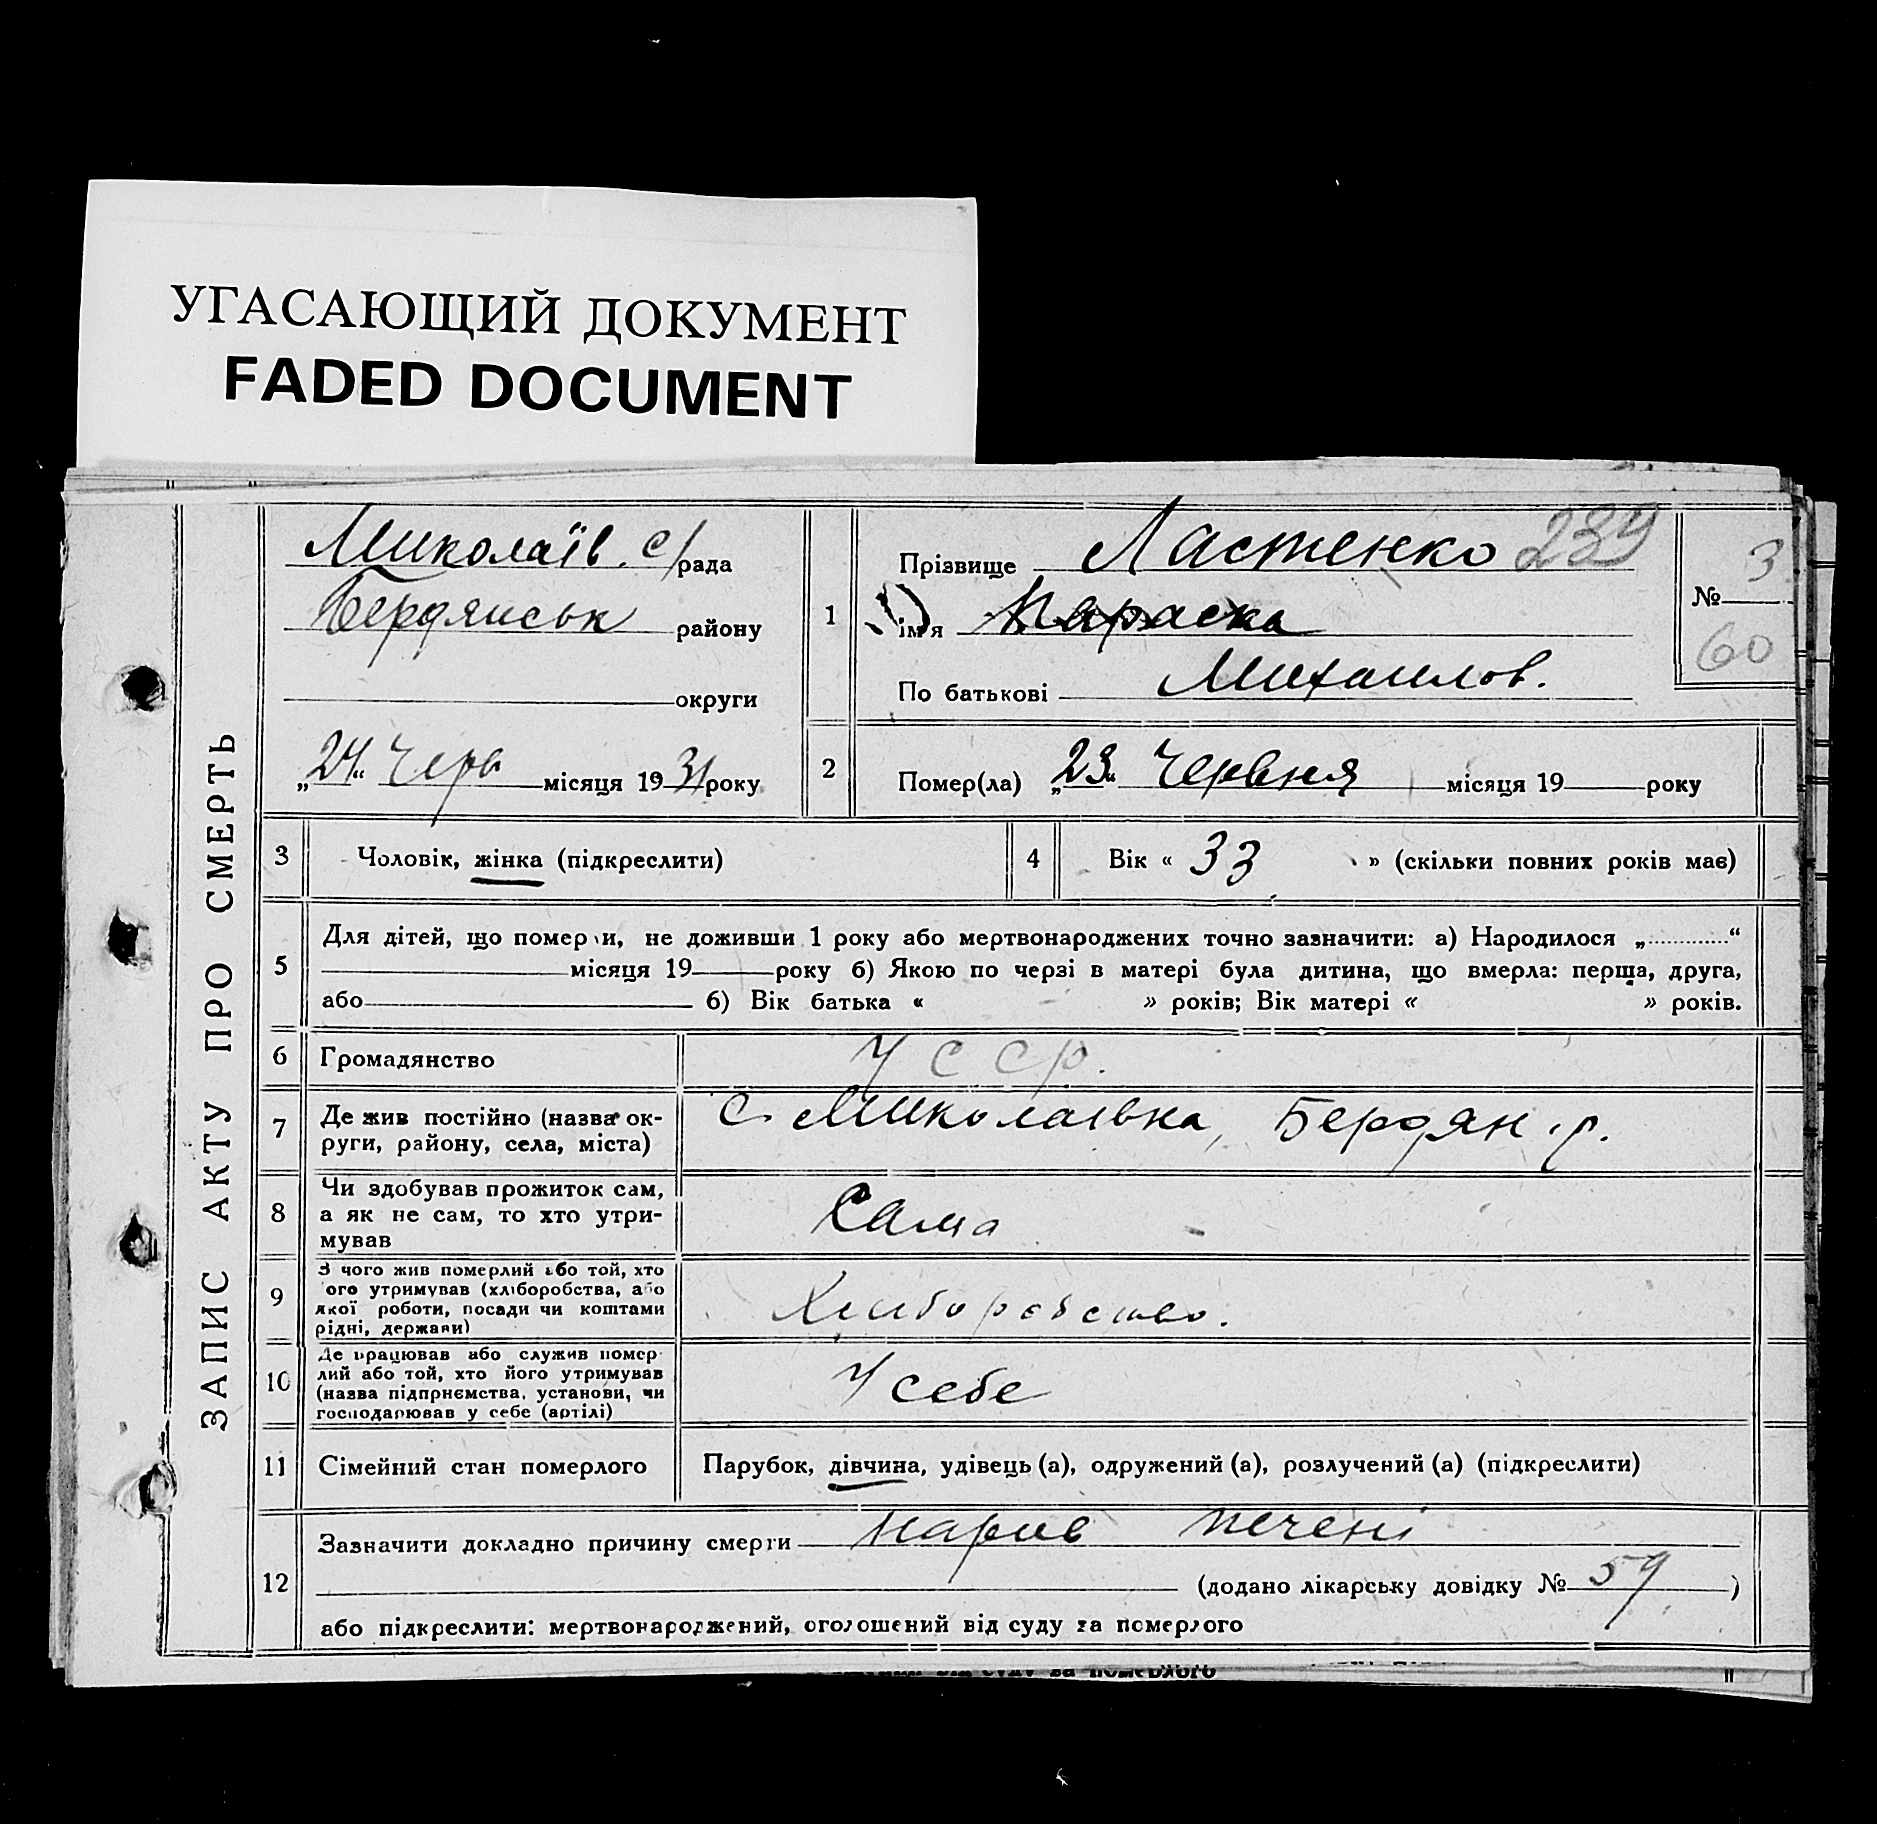 УГАСАЮЩИЙ ДОКУМЕНТ
FADED DOCUMENT
ЗАПИС АКТУ ПРО СМЕРТЬ
Миколаїв. с/рада
Бердянськ району
округи
„24“ Черв місяця 1931 року
1
Прізвище Ластенко 239
ім'я Параска
По батькові Михаилов.
№ 3
60
2
Помер(ла) „23“ Червня місяця 19 року
3 Чоловік, жінка (підкреслити)
4 Вік « 33 » (скільки повних років має)
5
Для дітей, що померли, не доживши 1 року або мертвонароджених точно зазначити: а) Народилося „............“
місяця 19 року б) Якою по черзі в матері була дитина, що вмерла: перша, друга,
або б) Вік батька « » років; Вік матері « » років.
6 Громадянство УССР.
7 Де жив постійно (назва ок-
руги, району, села, міста)
с. Миколаівка, Бердян. р.
8 Чи здобував прожиток сам,
а як не сам, то хто утри-
мував
Сама
9 З чого жив померлий або той, хто
його утримував (хліборобства, або
якої роботи, посади чи коштами
рідні, держави)
Хліборобство.
10 Де працював або служив помер-
лий або той, хто його утримував
(назва підприємства, установи, чи
господарював у себе (артілі)
У себе
11 Сімейний стан померлого
Парубок, дівчина, удівець (а), одружений (а), розлучений (а) (підкреслити)
12
Зазначити докладно причину смерти нарив печені
(додано лікарську довідку № 59)
або підкреслити: мертвонароджений, оголошений від суду за померлого
за померлого